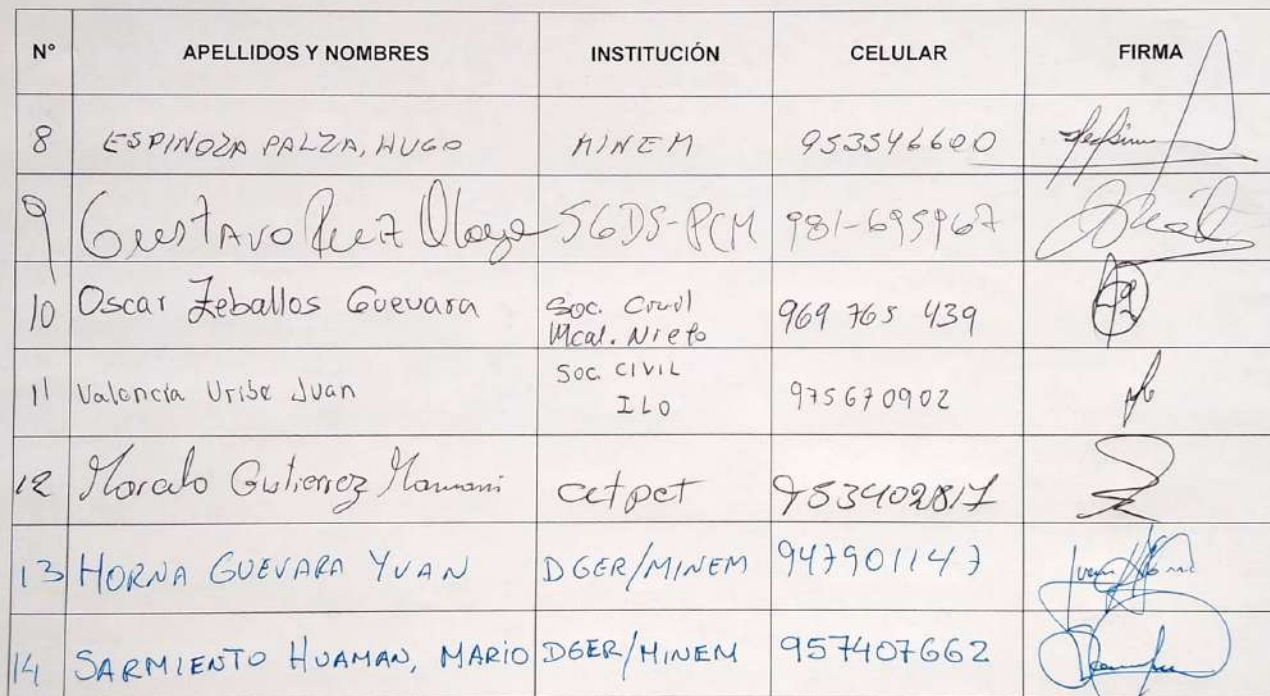 N° APELLIDOS Y NOMBRES INSTITUCIÓN CELULAR FIRMA
8 ESPINOZA PALZA, HUGO MINEM 953546600
9 Gustavo Ruiz Olaya SGDS-PCM 981-695967
10 Oscar Zeballos Guevara Soc. Civil Mcal. Nieto 969 765 439
11 Valencia Uribe Juan Soc. CIVIL ILO 975670902
12 Marcelo Gutierrez Mamani cetpet 953402817
13 HORNA GUEVARA YVAN DGER/MINEM 947901147
14 SARMIENTO HUAMAN, MARIO DGER/MINEM 957407662